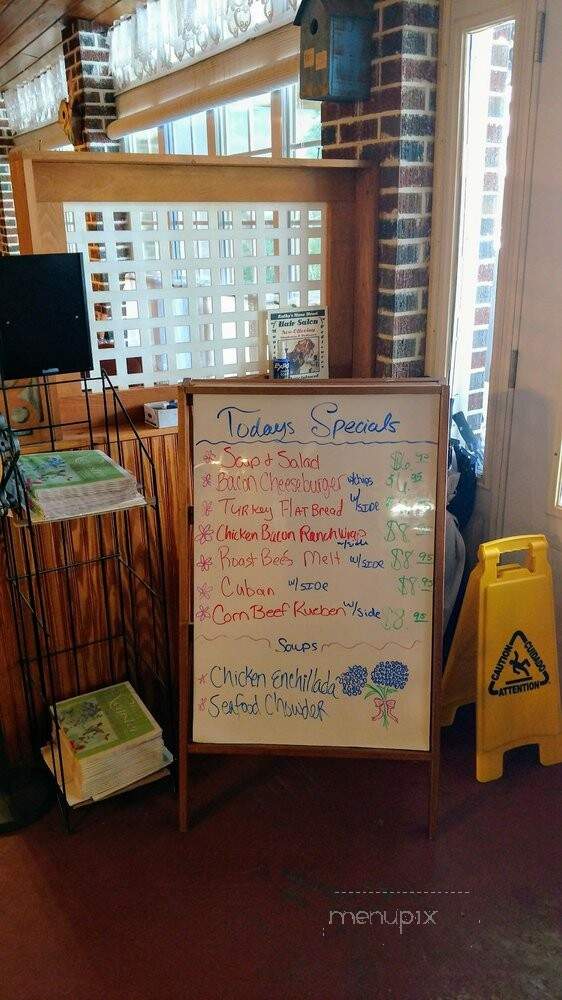 Todays Specials
Soup & Salad
Bacon Cheeseburger w/chips
Turkey Flat Bread w/side
Chicken Bacon Ranch Wrap w/side $8
Roast Beef Melt w/side $8.95
Cuban w/side $8.95
Corn Beef Rueben w/side $8.95
Soups
Chicken Enchillada
Seafood Chowder
Hair Salon
CAUTION
CUIDADO
ATTENTION
menupix